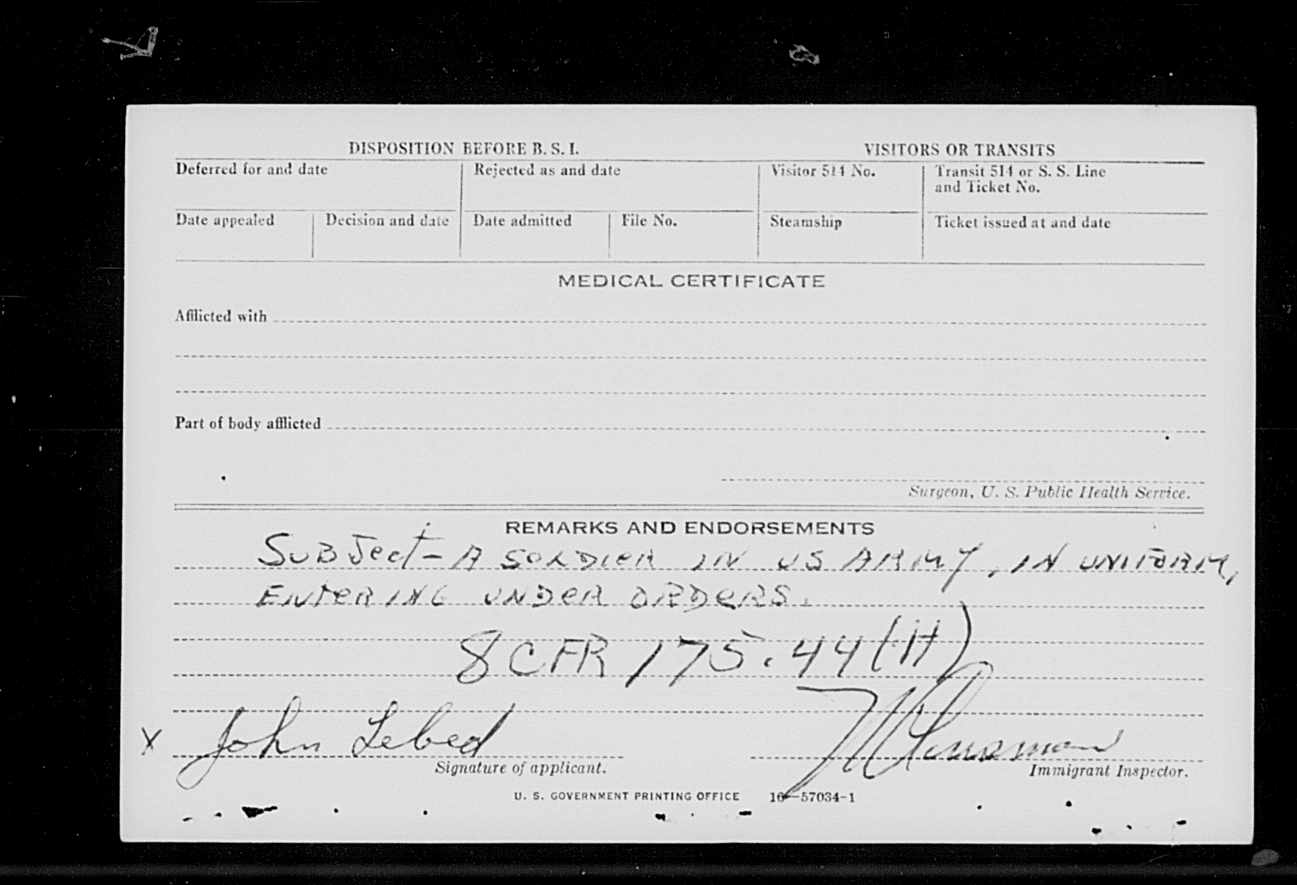 DISPOSITION BEFORE B. S. I.
VISITORS OR TRANSITS
Deferred for and date
Rejected as and date
Visitor 514 No.
Transit 514 or S. S. Line
and Ticket No.
Date appealed
Decision and date
Date admitted
File No.
Steamship
Ticket issued at and date
MEDICAL CERTIFICATE
Afflicted with
Part of body afflicted
Surgeon, U. S. Public Health Service.
REMARKS AND ENDORSEMENTS
SUBJect - A SOLDIER IN US ARMY, IN UNIFORM,
ENTERING UNDER ORDERS.
8 CFR 175.44(H)
X John Lebed
Signature of applicant.
Immigrant Inspector.
U. S. GOVERNMENT PRINTING OFFICE 16—57034-1